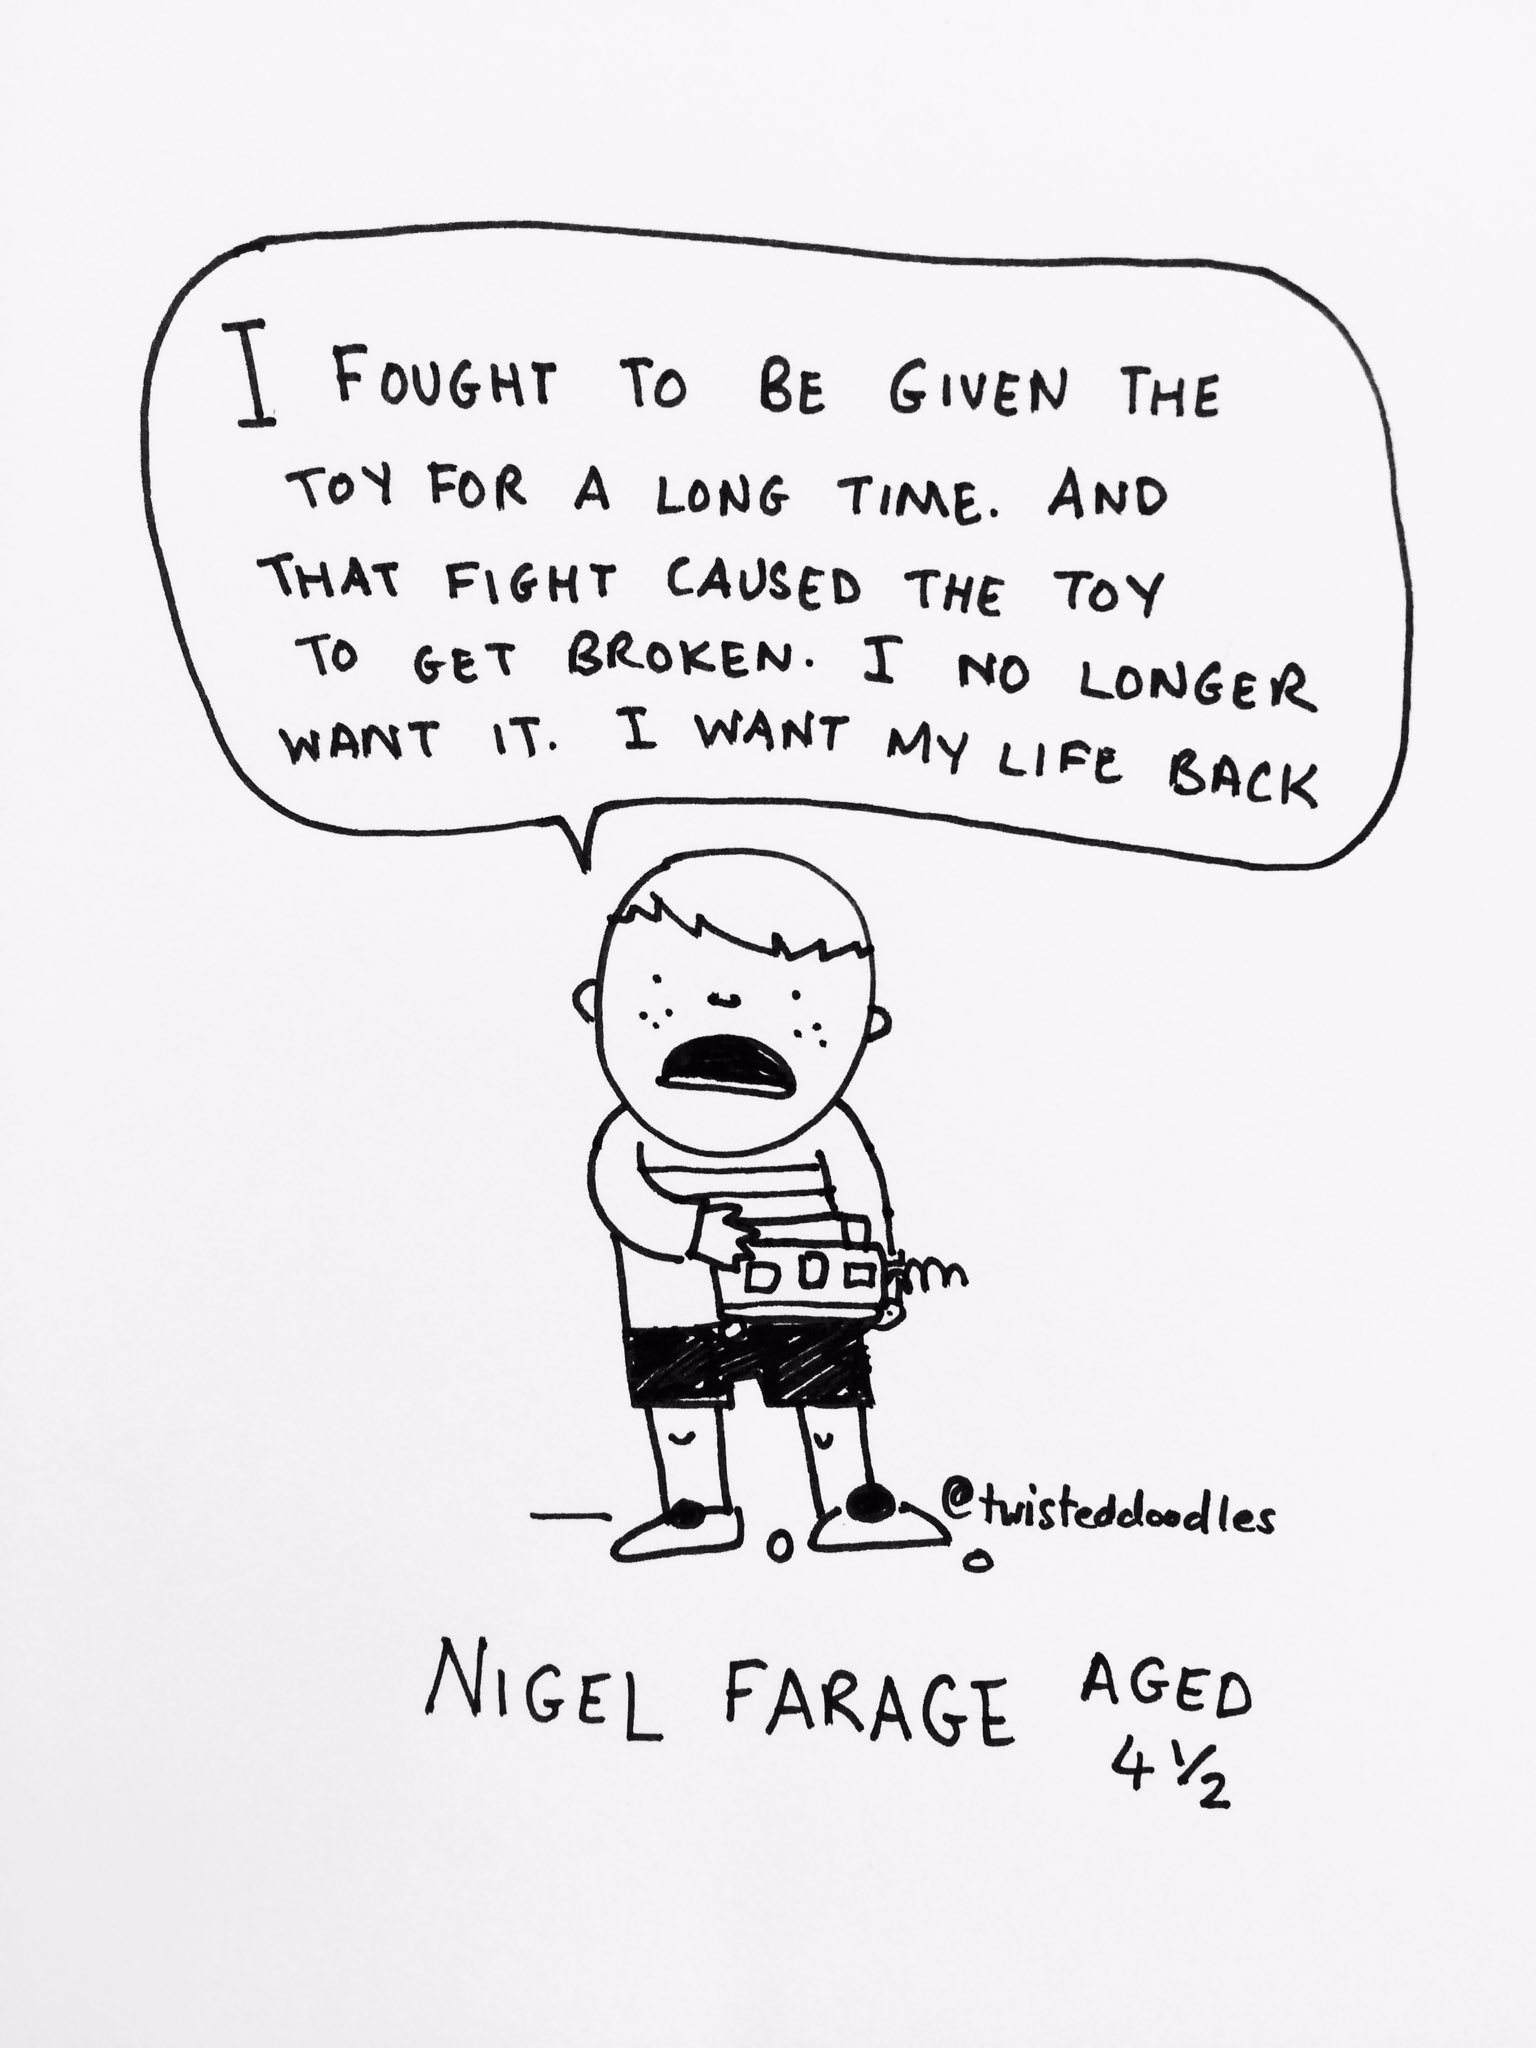 I FOUGHT TO BE GIVEN THE
TOY FOR A LONG TIME. AND
THAT FIGHT CAUSED THE TOY
TO GET BROKEN. I NO LONGER
WANT IT. I WANT MY LIFE BACK
@twisteddoodles
NIGEL FARAGE AGED
4 ½